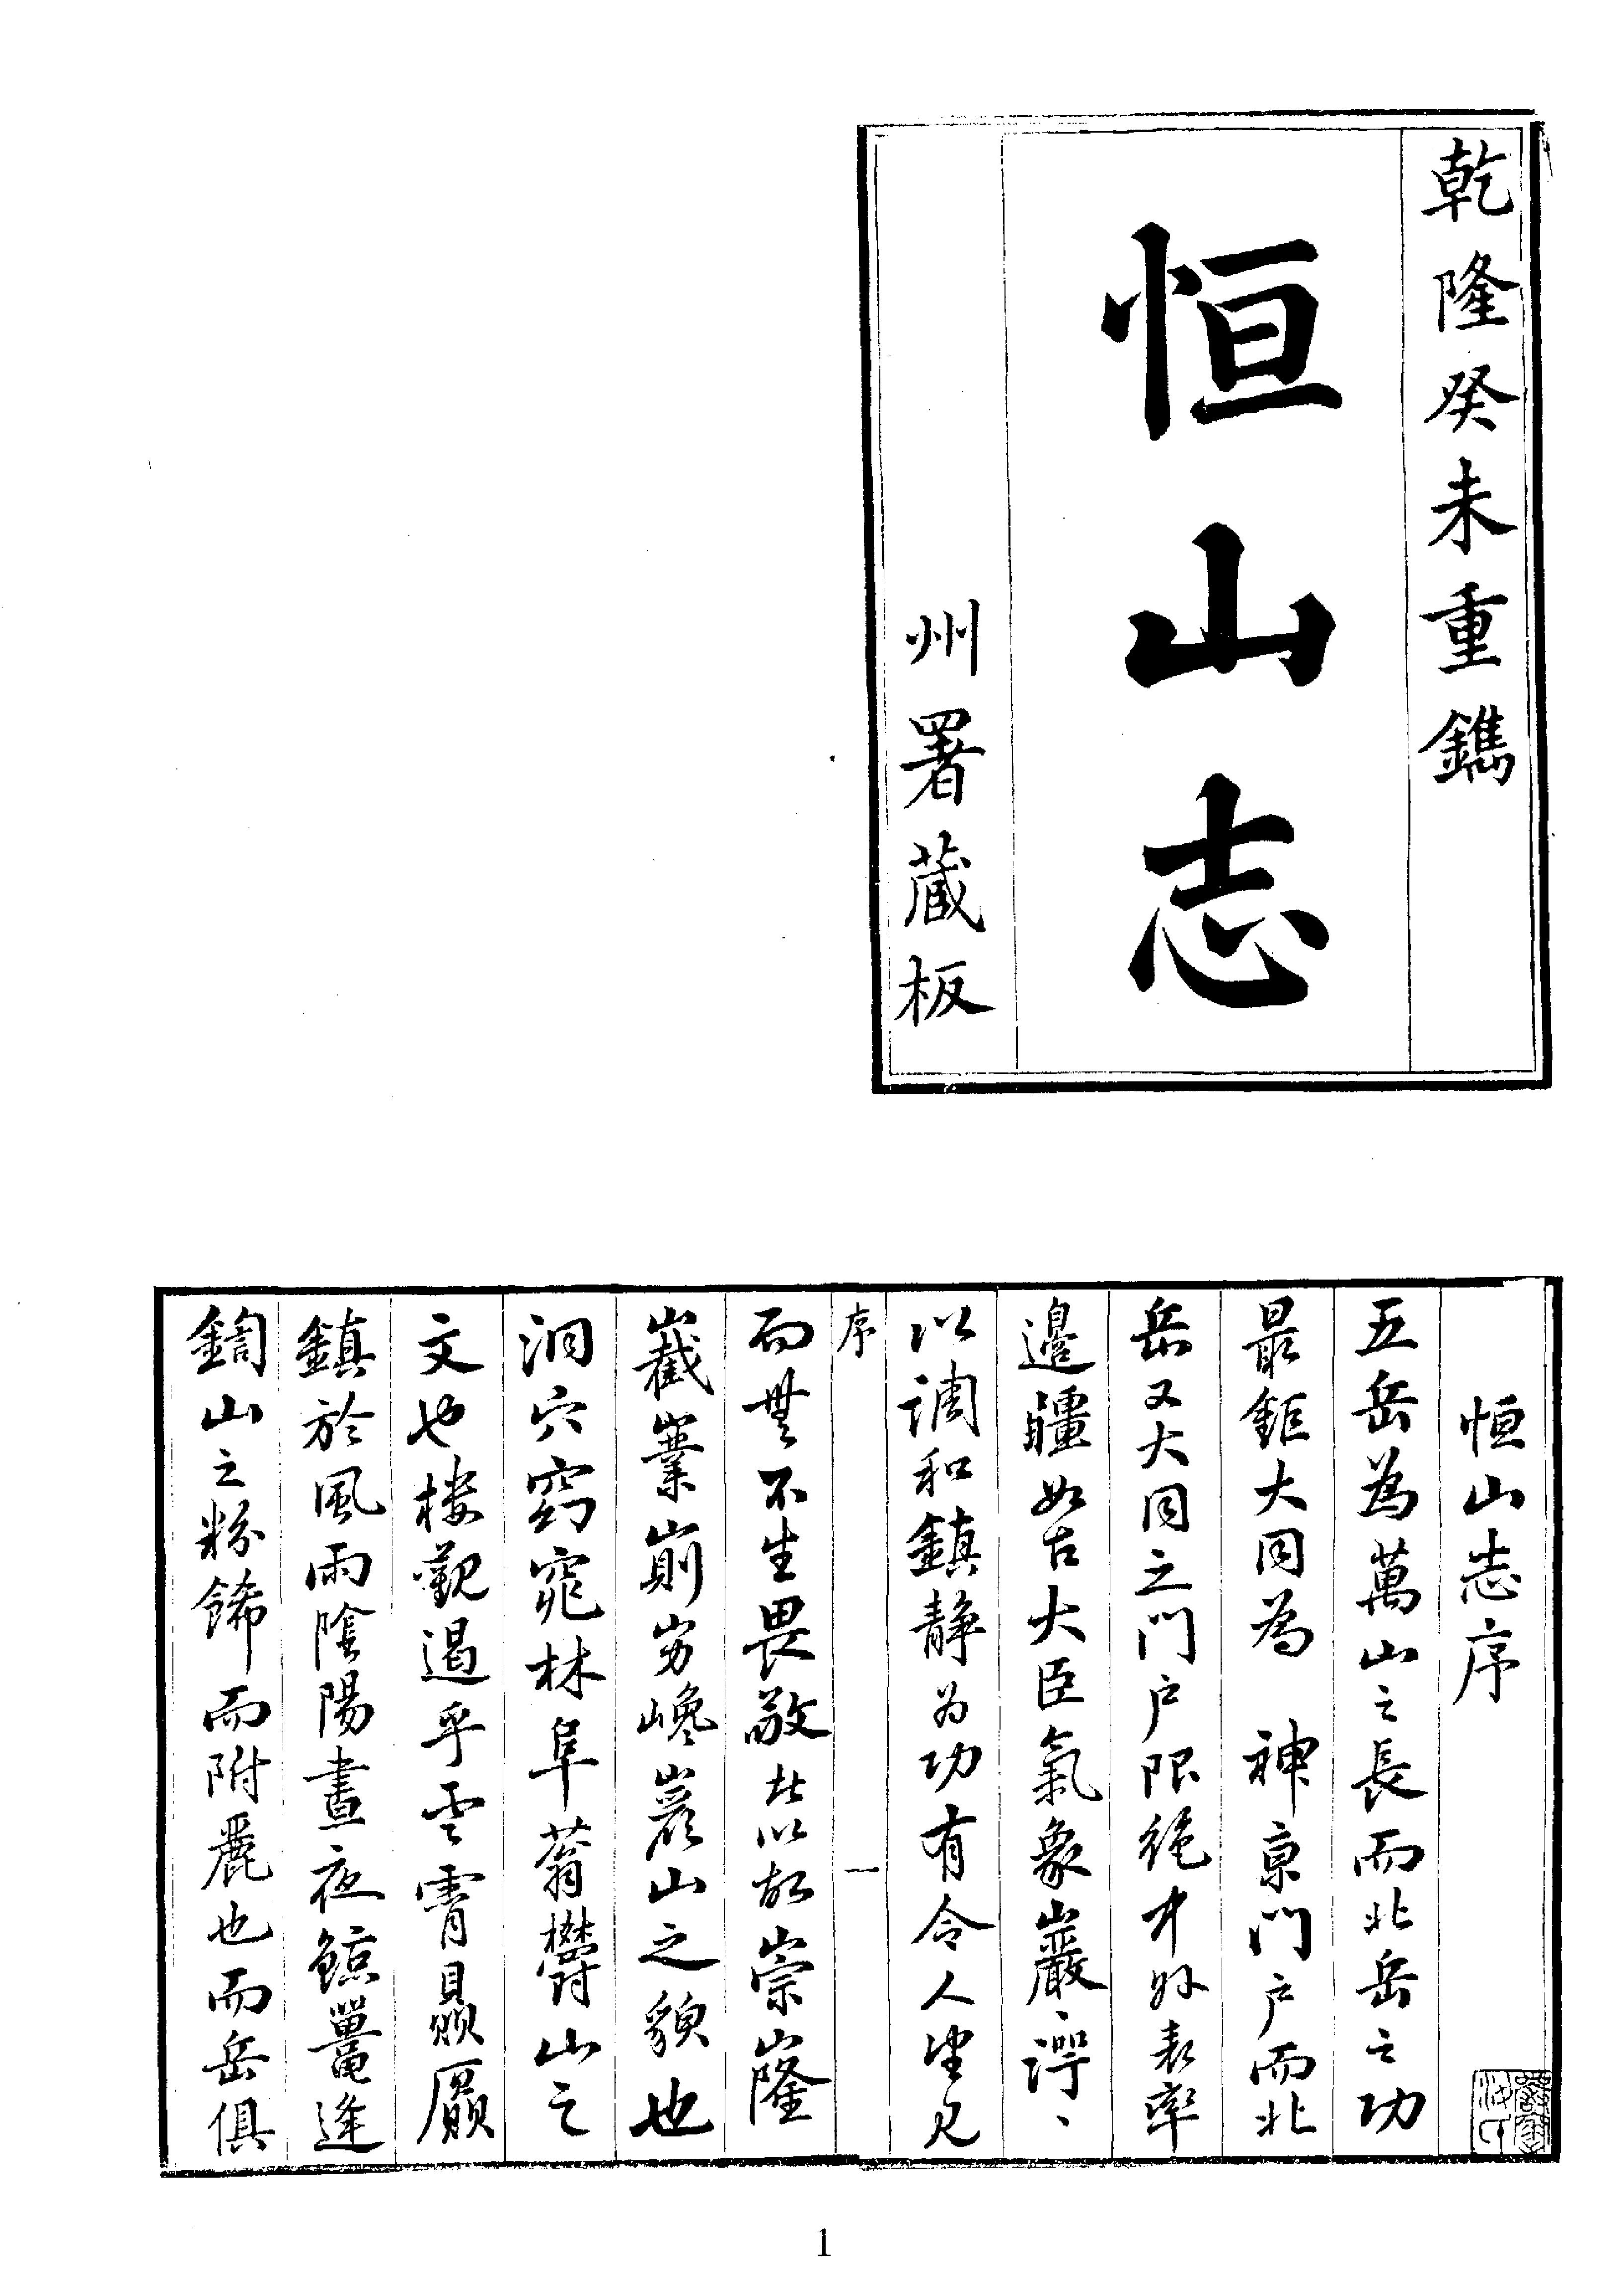 乾隆癸未重鐫
恒山志
州署藏板
恒山志序
五岳為萬山之長而北岳之功
最鉅大同為 神京門户而北
岳又大同之門户限絶中外表率
邊疆如古大臣氣象巖、諤、
以調和鎮静为功有令人望見
序 一
而無不生畏敬者以故崇嶐
嶻嶪崱屴巉巖山之貌也
洞穴窈窕林阜蓊欝山之
文也楼觀遏乎雲霄贔屭
鎮於風雨陰陽晝夜鯨鼉逢
鍧山之粉餙而附麗也而岳俱
1